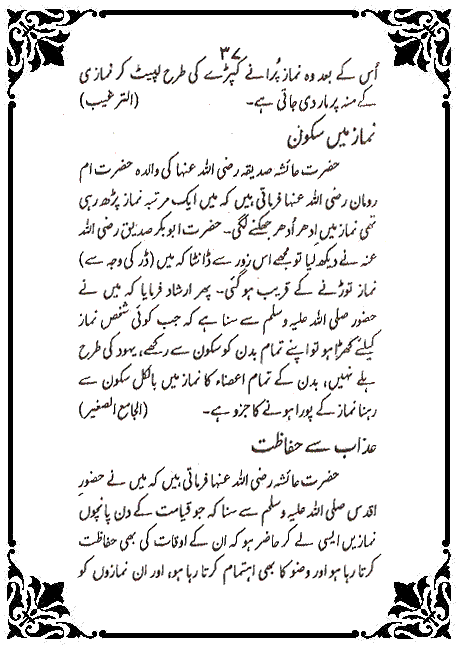 ۳۷
اُس کے بعد وہ نماز پُرانے کپڑے کی طرح لپیٹ کر نمازی
کے منہ پر مار دی جاتی ہے۔ (الترغیب)
نماز میں سکون
حضرت عائشہ صدیقہ رضی اللہ عنہا کی والدہ حضرت ام
رومان رضی اللہ عنہا فرماتی ہیں کہ میں ایک مرتبہ نماز پڑھ رہی
تھی نماز میں اِدھر اُدھر جھکنے لگی۔ حضرت ابوبکر صدیق رضی اللہ
عنہ نے دیکھ لیا تو مجھے اس زور سے ڈانٹا کہ میں (ڈر کی وجہ سے)
نماز توڑنے کے قریب ہو گئی۔ پھر ارشاد فرمایا کہ میں نے
حضور صلی اللہ علیہ وسلم سے سنا ہے کہ جب کوئی شخص نماز
کیلئے کھڑا ہو تو اپنے تمام بدن کو سکون سے رکھے، یہود کی طرح
ہلے نہیں، بدن کے تمام اعضاء کا نماز میں بالکل سکون سے
رہنا نماز کے پورا ہونے کا جزو ہے۔ (الجامع الصغیر)
عذاب سے حفاظت
حضرت عائشہ رضی اللہ عنہا فرماتی ہیں کہ میں نے حضورِ
اقدس صلی اللہ علیہ وسلم سے سنا کہ جو قیامت کے دن پانچوں
نمازیں ایسی لے کر حاضر ہو کہ ان کے اوقات کی بھی حفاظت
کرتا رہا ہو اور وضو کا بھی اہتمام کرتا رہا ہو، اور ان نمازوں کو